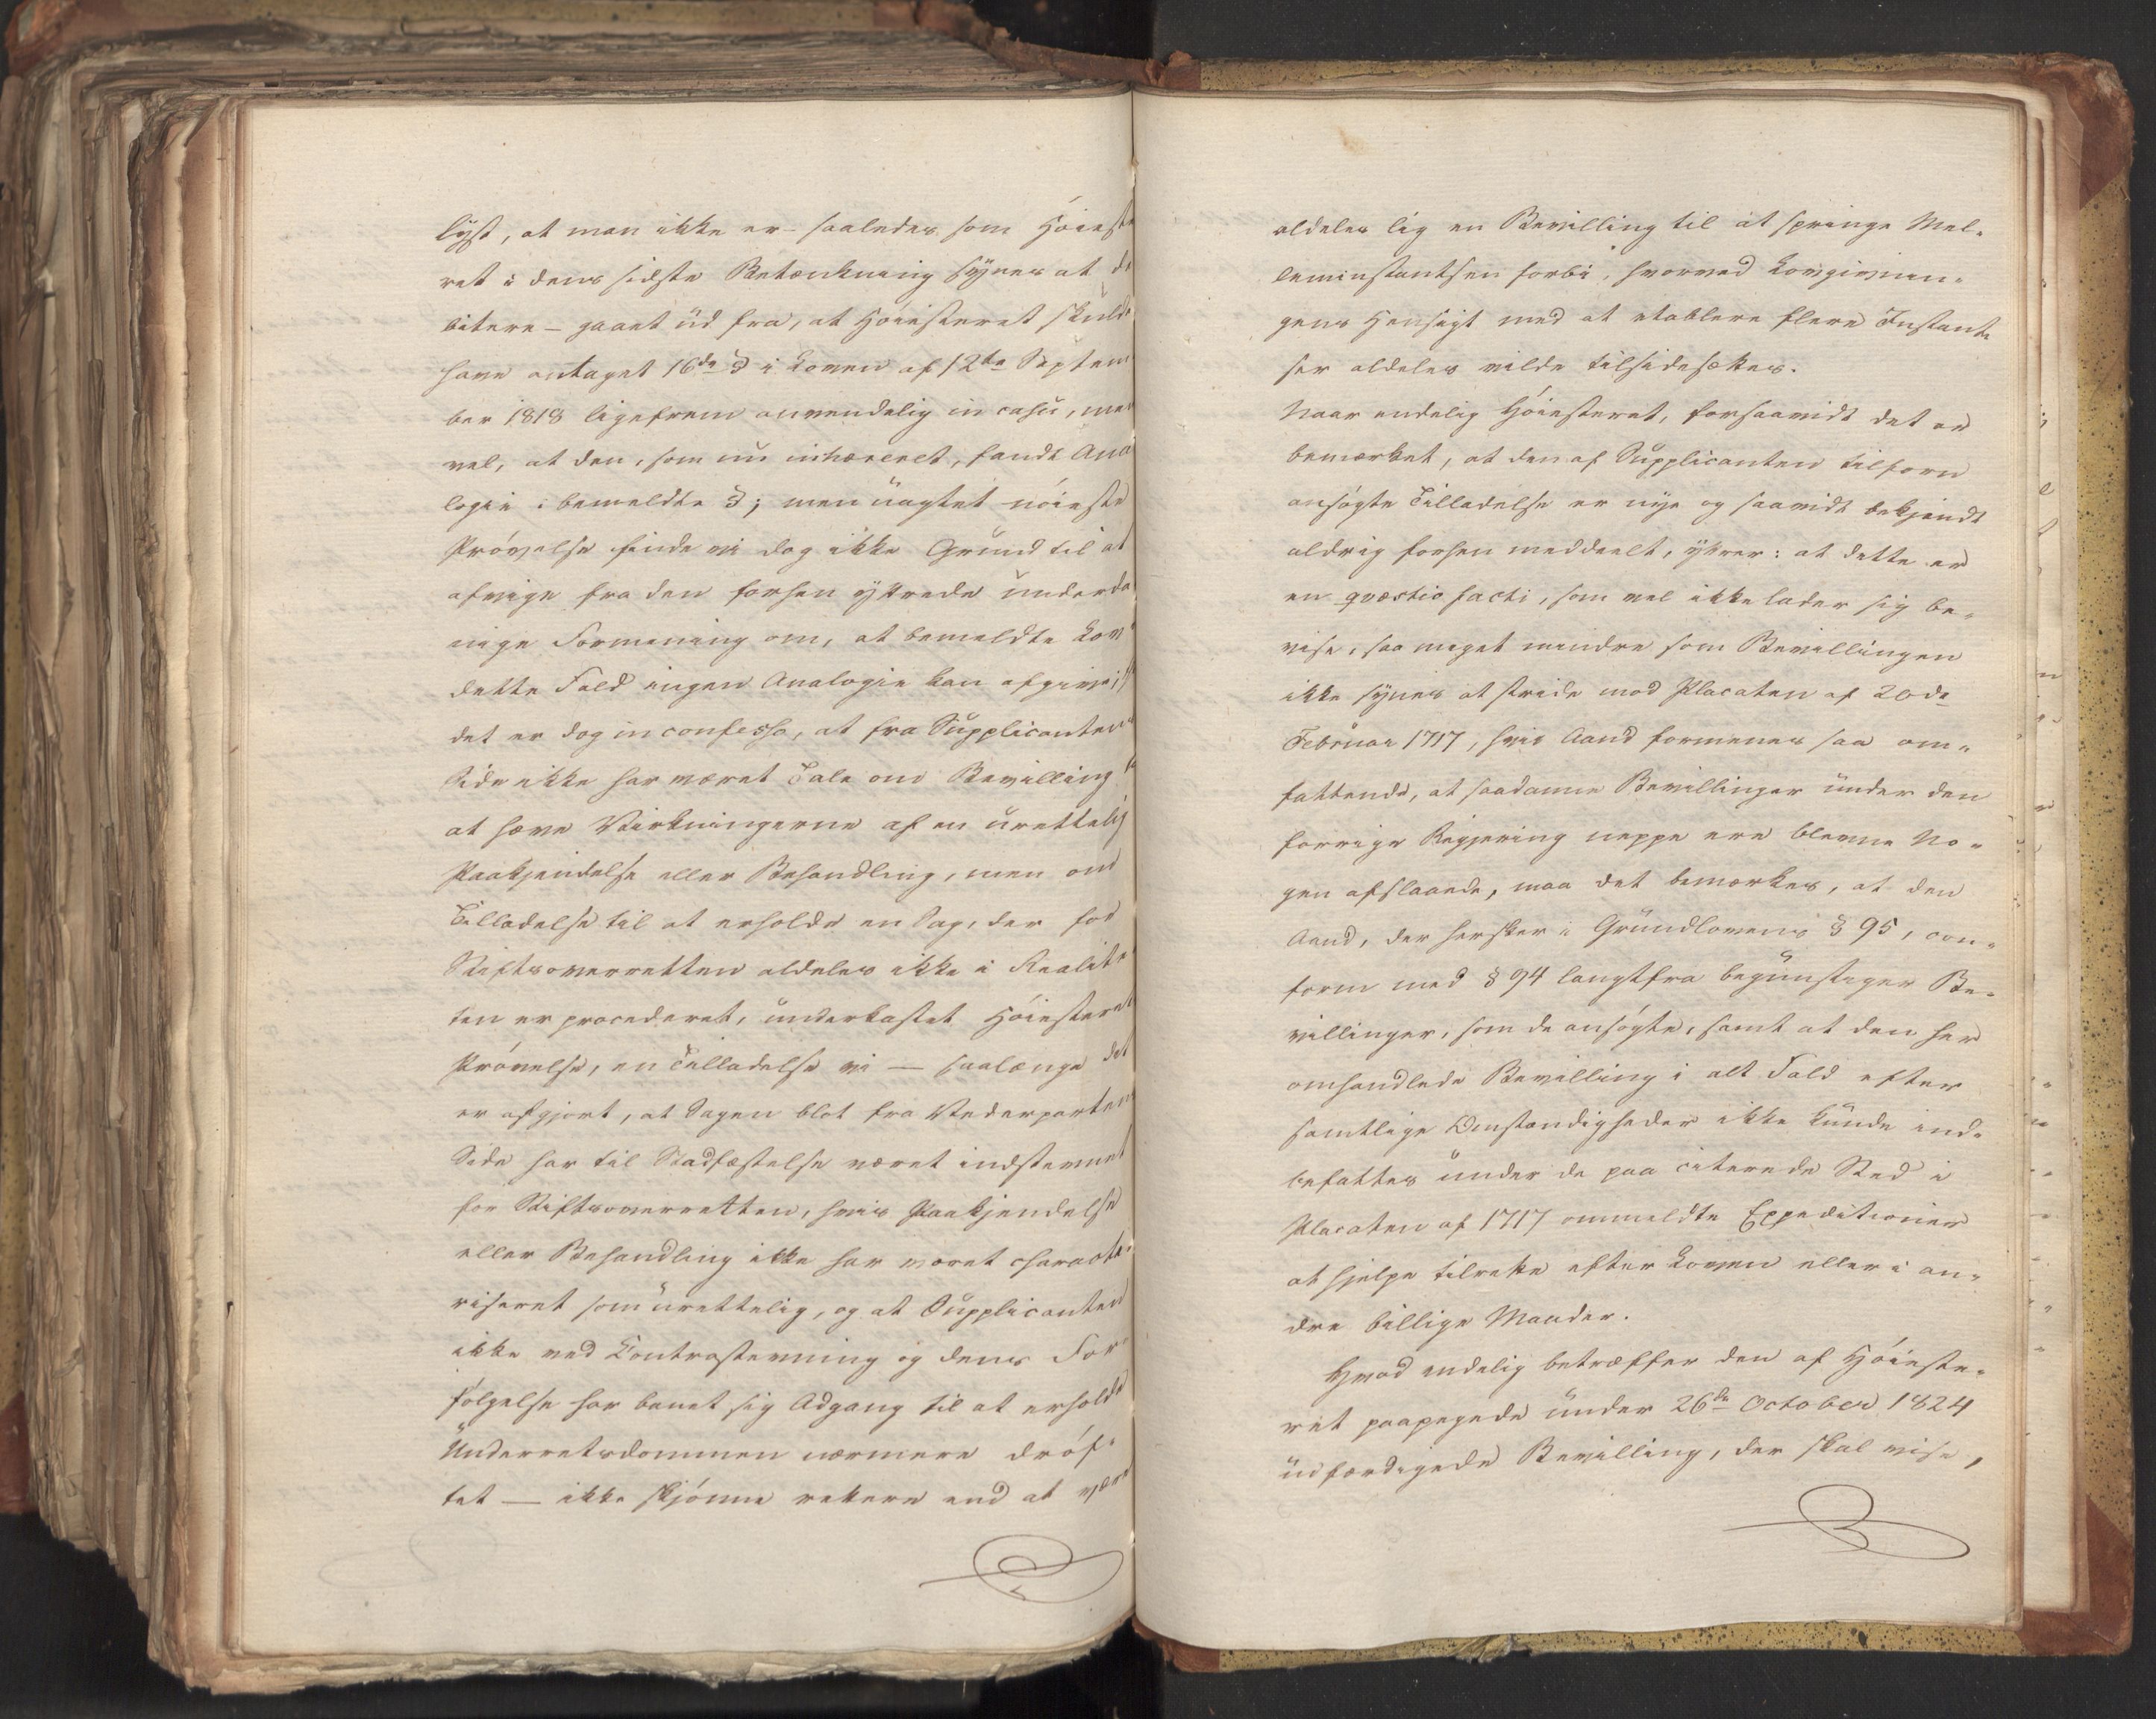 lyst, at man ikke er – saaledes som Høieste
ret i dens sidste Betænkning synes at de
bitere – gaaet ud fra, at Høiesteret skulde
have antaget 16de § i Loven af 12te Septem
ber 1818 ligefrem anvendelig in casu, men
vel, at den, som nu inhæreret, fandt Ana
logie i bemeldte §; men uagtet nøieste
Prøvelse finde vi dog ikke Grund til at
afvige fra den forhen yttrede underda
nige Formening om, at bemeldte Lov i
dette Fald ingen Analogie kan afgive;
det er dog in confesso, at fra Supplicantens
Side ikke har været Tale om Bevilling
at hæve Virkningerne af en urettelig
Paakjendelse eller Behandling, men om
Tilladelse til at erholde en Sag, der for
Stiftsoverretten aldeles ikke i Realite
ten er procederet, underkastet Høiesterets
Prøvelse, en Tilladelse vi – saalænge det
er afgjort, at Sagen blot fra Vederpartens
Side har til Stadfæstelse været indstevnet
for Stiftsoverretten, hvis Paakjendelse
eller Behandling ikke har været characte-
riseret som urettelig, og at Supplicanten
ikke ved Contrastevning og dens For-
følgelse har banet sig Adgang til at erholde
Underretsdommen nærmere drøf-
tet – ikke skjønne rettere end at være
aldeles lig en Bevilling til at springe Mel-
leminstantsen forbi, hvorved Lovgivnin-
gens Hensigt med at etablere flere Instant-
ser aldeles vilde tilsidesættes.
Naar endelig Høiesteret, forsaavidt det er
bemærket, at den af Supplicanten tilforn
ansøgte Tilladelse er nye og saavidt bekjendt
aldrig forhen meddeelt, yttrer: at dette er
en qvæstio facti, som vel ikke lader sig be-
vise, saa meget mindre som Bevillingen
ikke synes at stride mod Placaten af 20de
Februar 1717, hvis Aand formenes saa om-
fattende, at saadanne Bevillinger under den
forrige Regjering neppe ere blevne No-
gen afslaaede, maa det bemærkes, at den
Aand, der hersker i Grundlovens § 95, con-
form med § 94 langtfra begunstiger Be-
villinger, som de ansøgte, samt at den her
omhandlede Bevilling i alt Fald efter
samtlige Omstændigheder ikke kunde ind-
befattes under de paa citerede Sted i
Placaten af 1717 ommeldte Expeditioner
at hjelpe tilrette efter Loven eller i an-
dre billige Maader.
Hvad endelig betræffer den af Høieste-
ret paapegede under 26de October 1824
udfærdigede Bevilling, der skal vise,